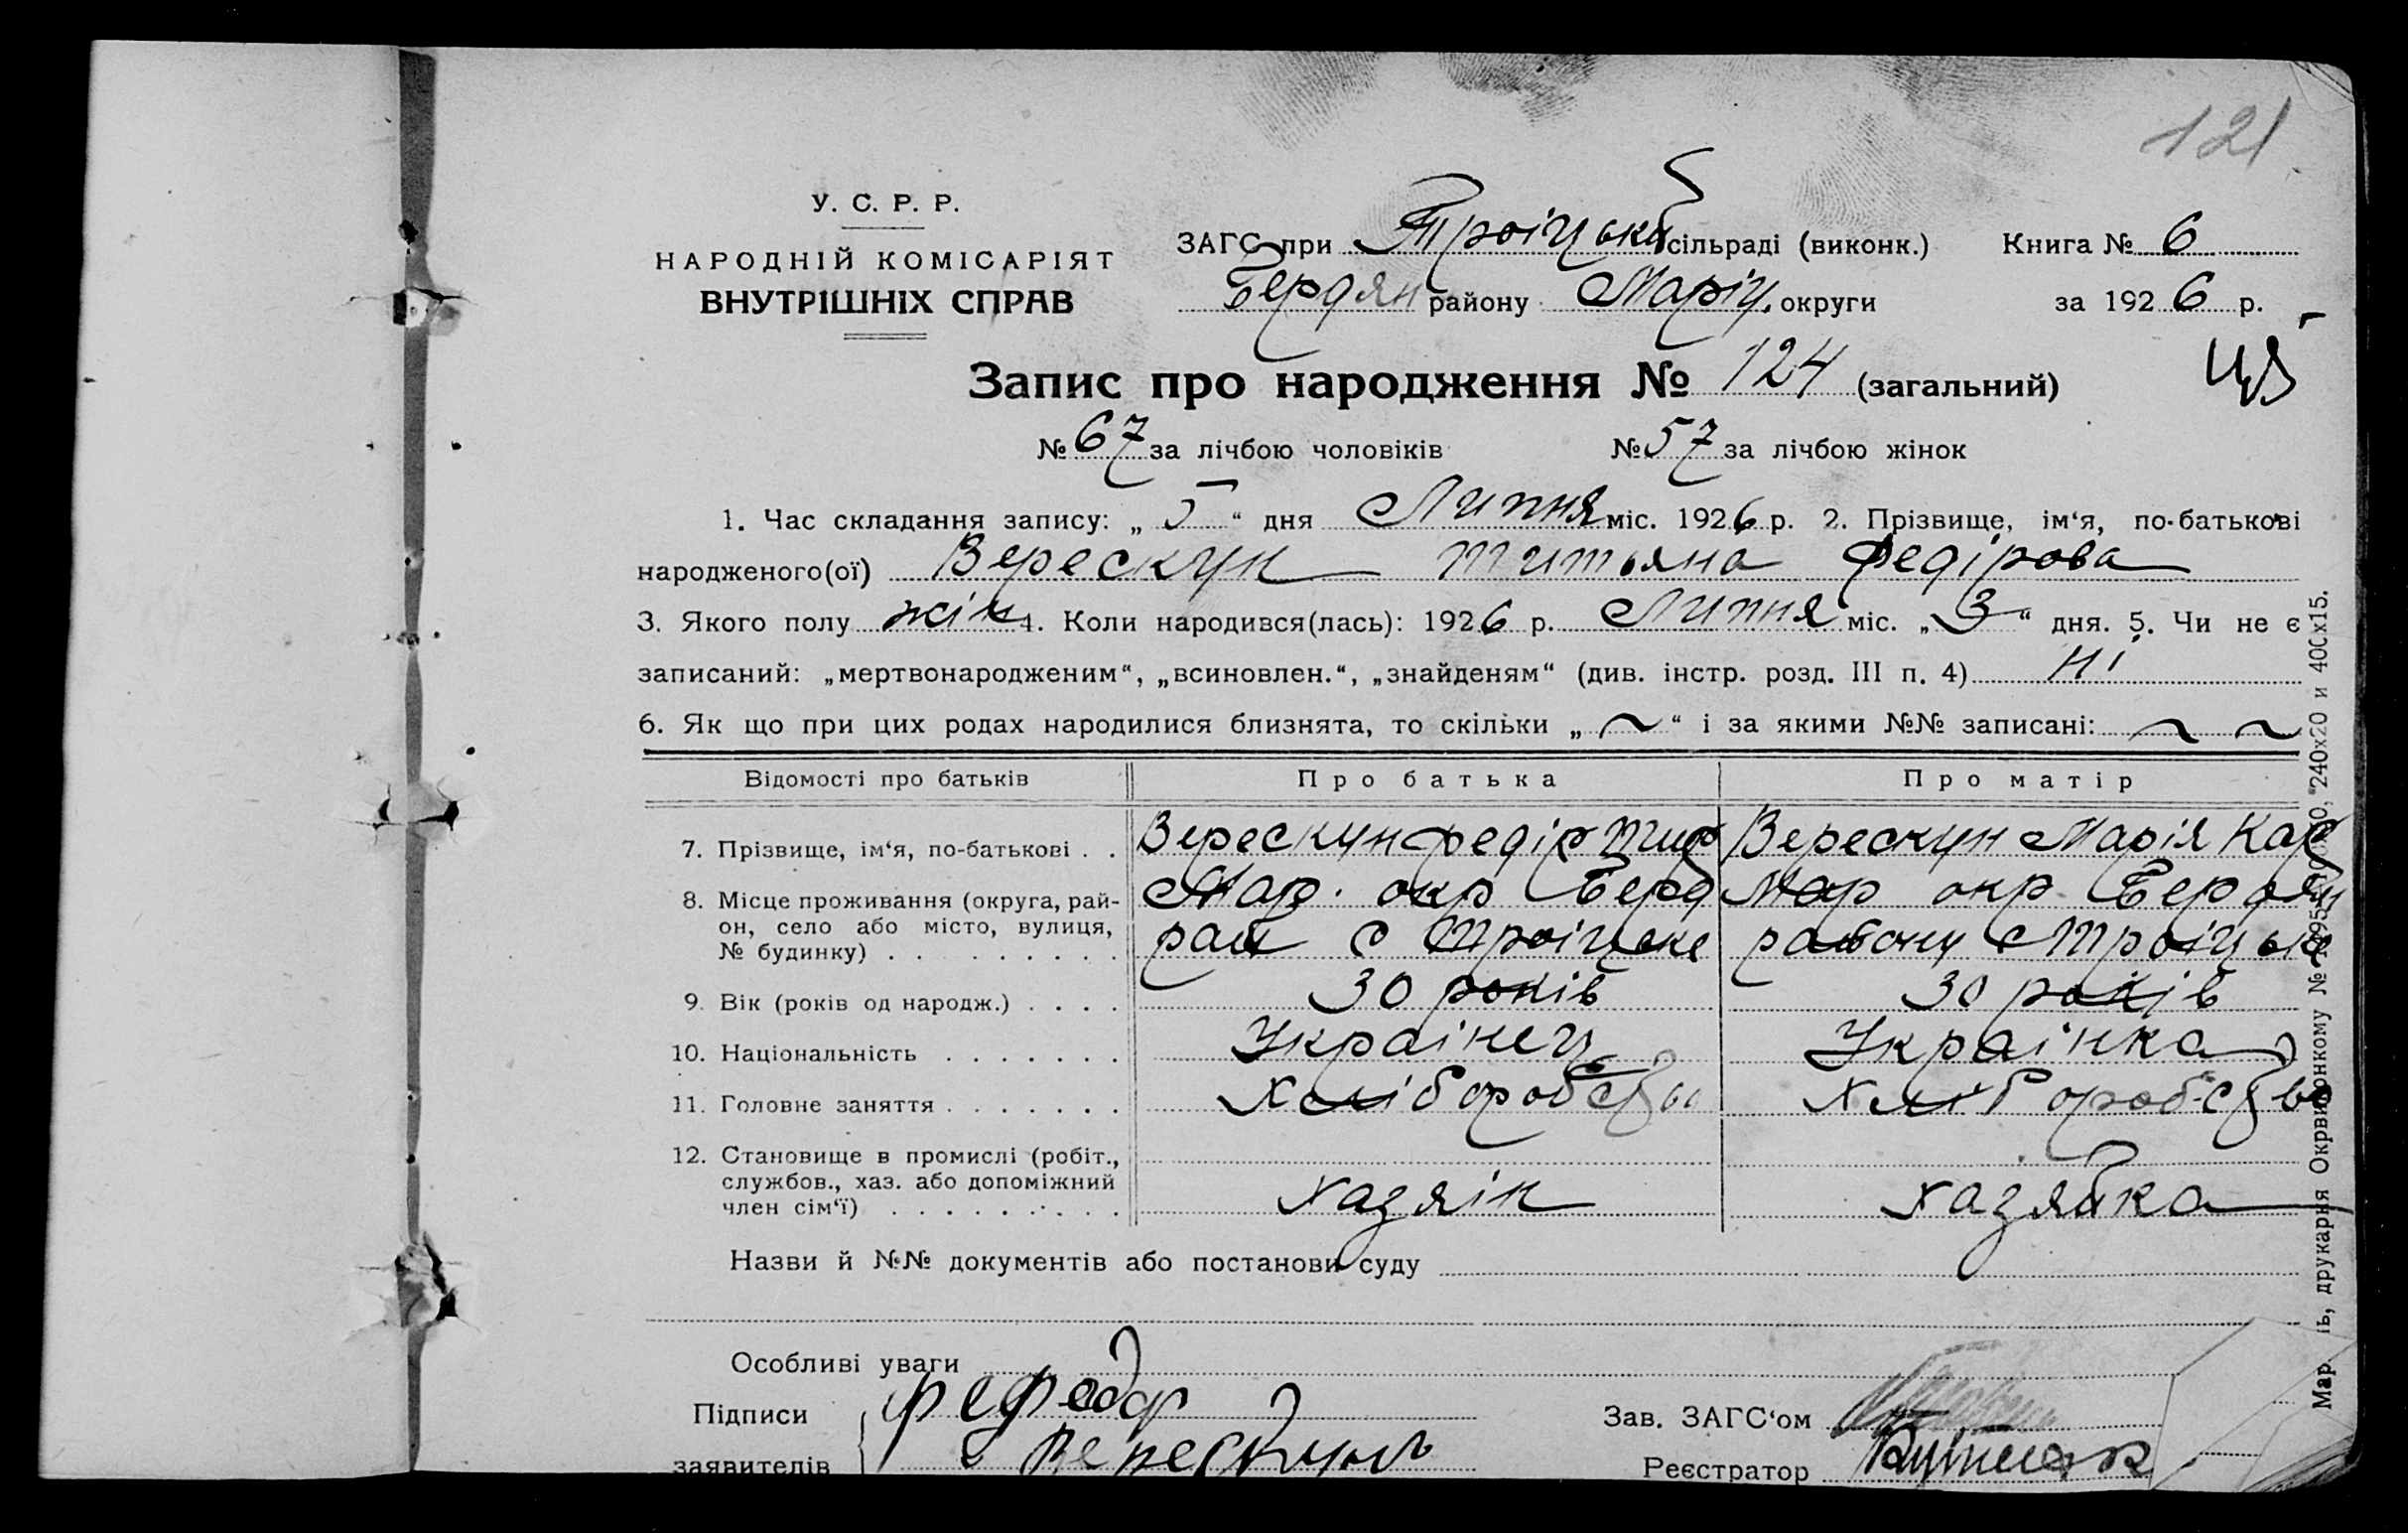 121
У. С. Р. Р.
НАРОДНІЙ КОМІСАРІЯТ
ВНУТРІШНІХ СПРАВ
ЗАГС при Троіцькій сільраді (виконк.) Книга № 6
Бердян району Маріу. округи за 1926 р.
Запис про народження № 124 (загальний)
№ 67 за лічбою чоловіків № 57 за лічбою жінок
1. Час складання запису: „5“ дня Липня міс. 1926 р. 2. Прізвище, ім‘я, по-батькові
народженого(ої) Верескун Титьяна Федірова
3. Якого полу жін 4. Коли народився(лась): 1926 р. Липня міс. „3“ дня. 5. Чи не є
записаний: „мертвонародженим“, „всиновлен.“, „знайденям“ (див. інстр. розд. III п. 4) ні
6. Як що при цих родах народилися близнята, то скільки „~“ і за якими №№ записані: ~ ~
Відомості про батьків Про батька Про матір
7. Прізвище, ім‘я, по-батькові . . Верескун Федір Тиф Верескун Марія Кар
8. Місце проживання (округа, рай- Мар. окр Берд Мар окр Бердян
он, село або місто, вулиця, рай с Троіцьке району с Троіцьке
№ будинку) . . . . . . . . .
9. Вік (років од народж.) . . . . 30 років 30 років
10. Національність . . . . . . . Українец Українка
11. Головне заняття . . . . . . . Хліборобство Хліборобство
12. Становище в промислі (робіт.,
службов., хаз. або допоміжний хазяін хазяйка
член сім‘ї) . . . . . . . . . .
Назви й №№ документів або постанови суду
Особливі уваги
Підписи Зав. ЗАГС‘ом
заявителів Верескунь Реєстратор
друкарня Окрвиконкому № 240х20 и 400х15.